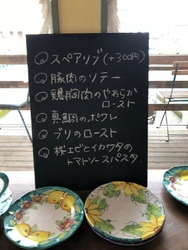 スペアリブ(+300円)
豚肉のソテー
鶏胸肉のやわらか
ロースト
真鯛のポワレ
ブリのロースト
桜エビとイカワタの
トマトソースパスタ